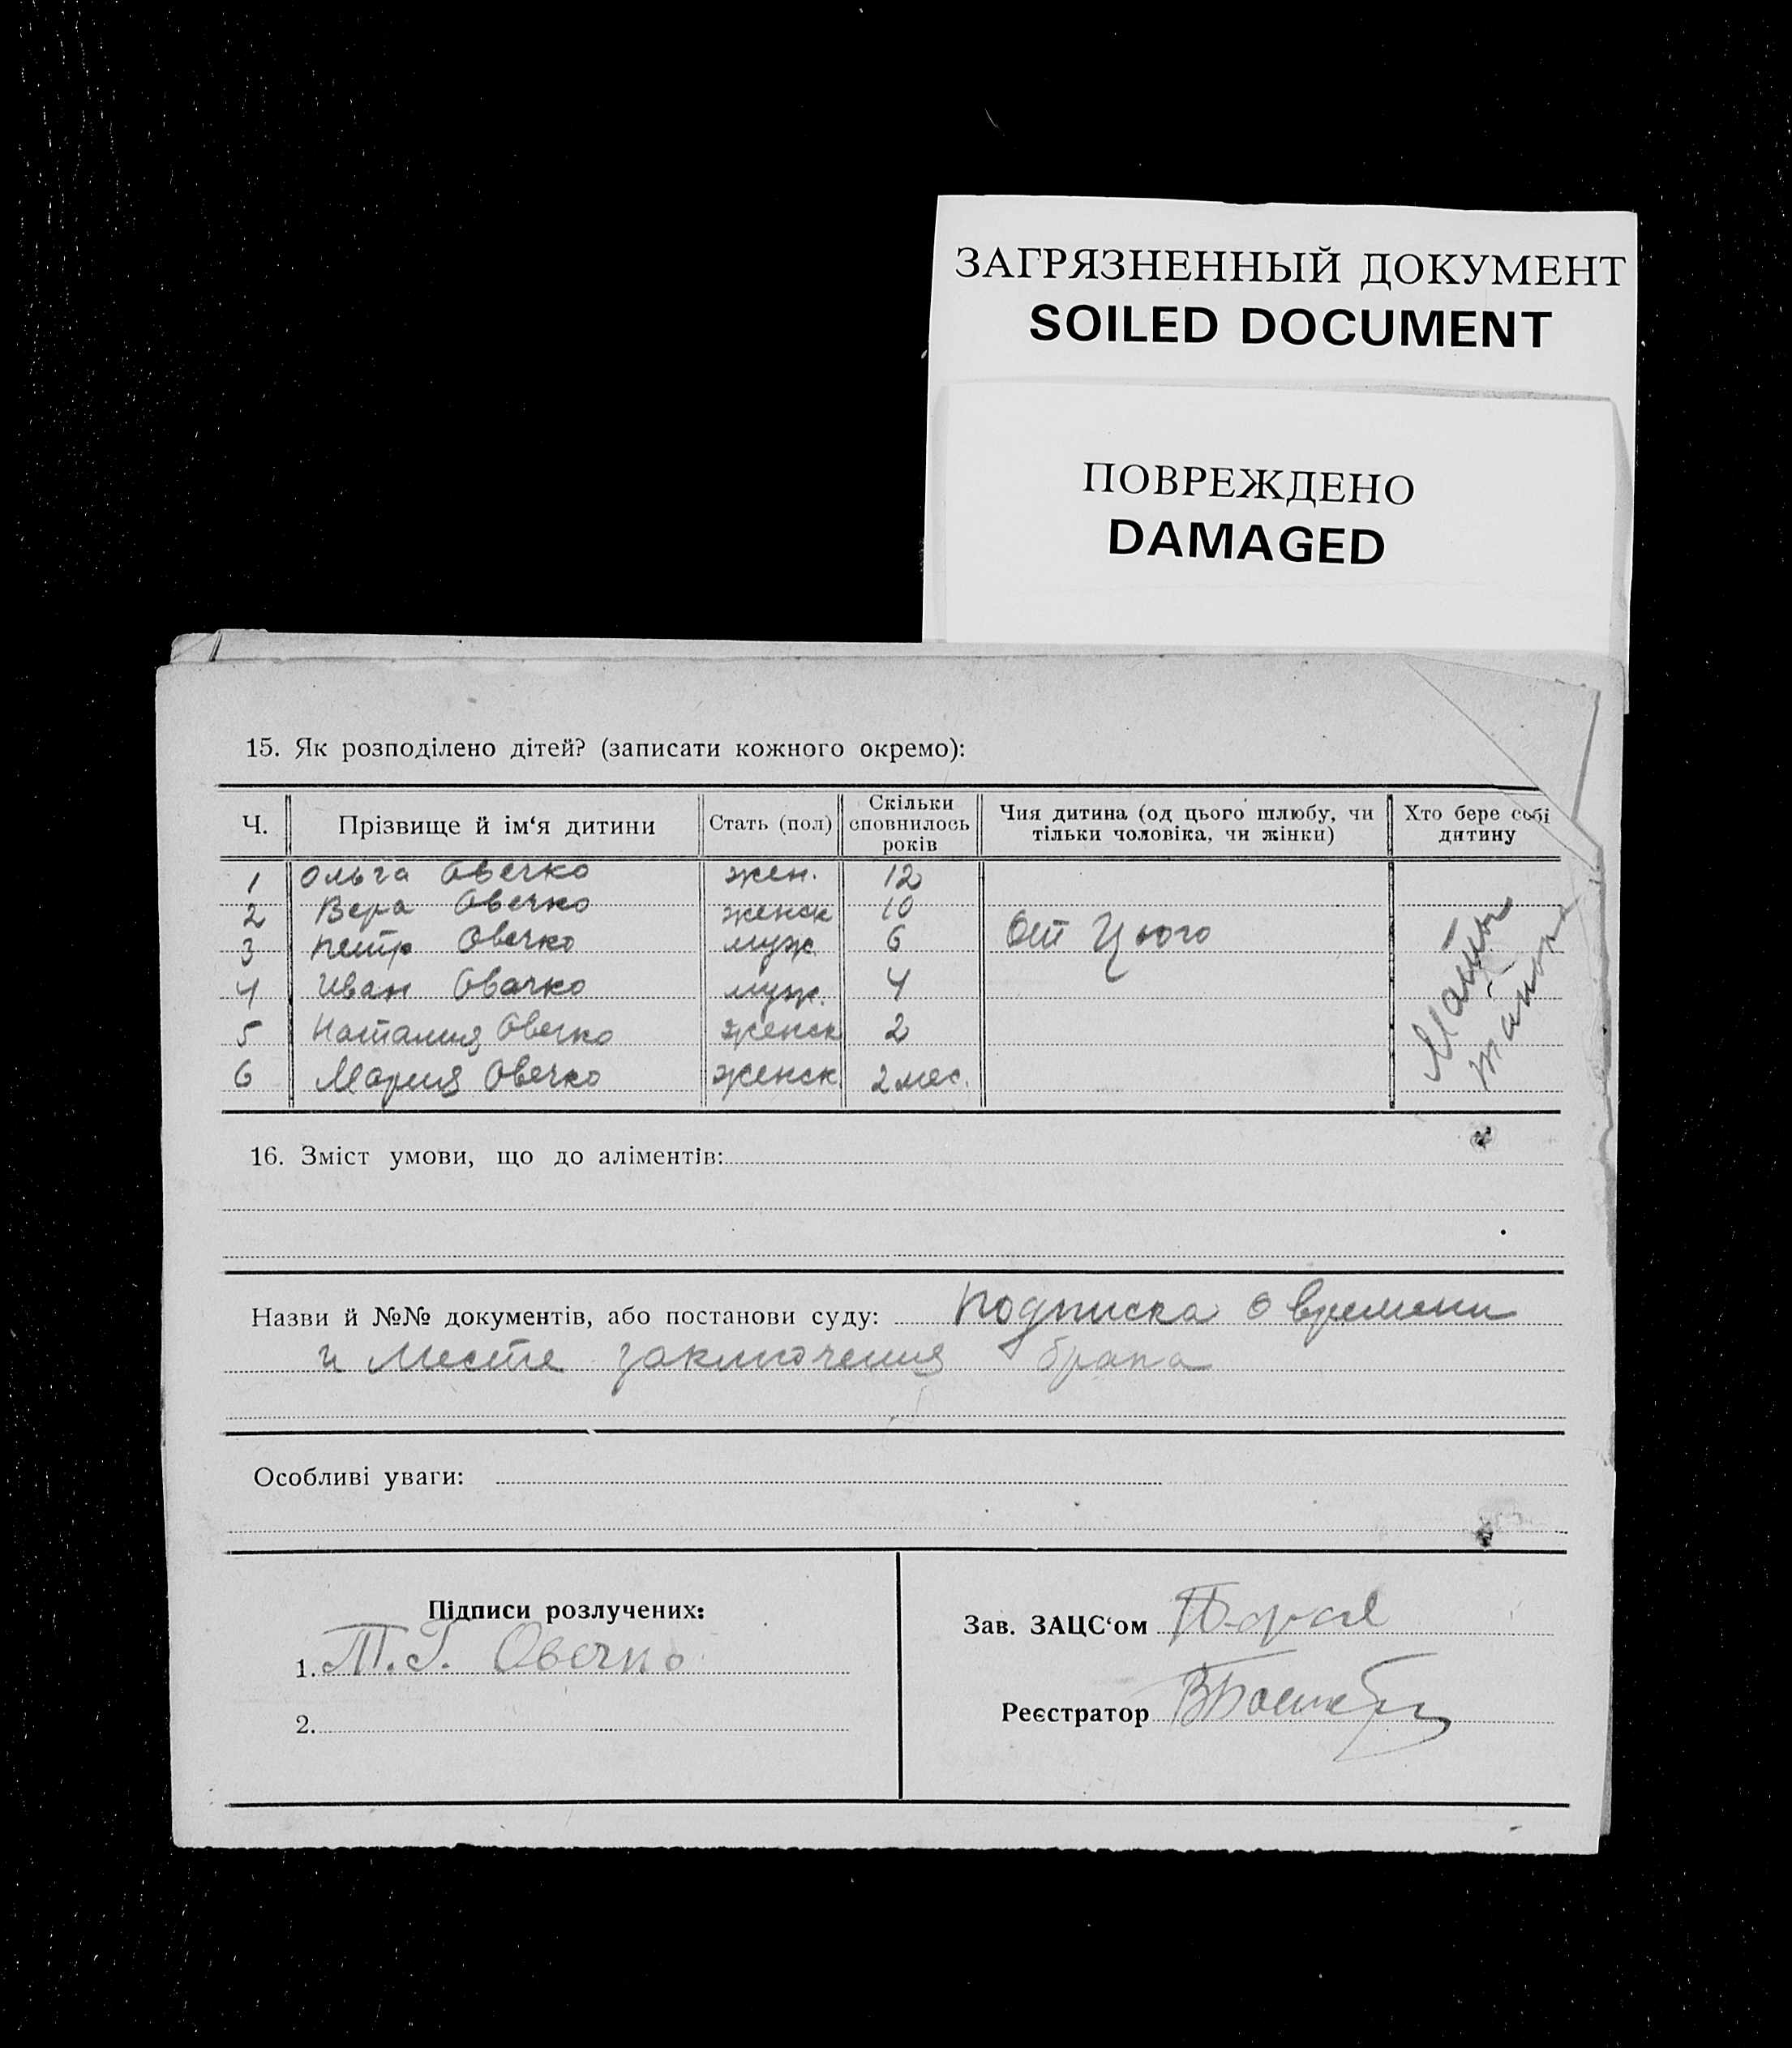 ЗАГРЯЗНЕННЫЙ ДОКУМЕНТ
SOILED DOCUMENT
ПОВРЕЖДЕНО
DAMAGED
15. Як розподілено дітей? (записати кожного окремо):
Ч. Прізвище й ім‘я дитини Стать (пол) Скільки сповнилось років Чия дитина (од цього шлюбу, чи тільки чоловіка, чи жінки) Хто бере собі дитину
1 Ольга Овечко жен. 12
2 Вера Овечко женск 10
3 Петр Овечко муж 6 От цього
4 Иван Овечко муж. 4
5 Наталия Овечко женск 2
6 Мария Овечко женск 2 мес.
16. Зміст умови, що до аліментів:
Назви й №№ документів, або постанови суду: подписка о времени
и месте заключения брака
Особливі уваги:
Підписи розлучених:
1. Овечко
2.
Зав. ЗАЦС‘ом
Реєстратор